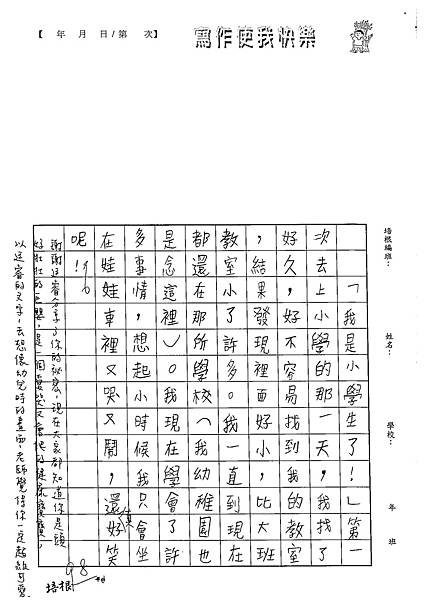 【 年 月 日/第 次】
寫作使我快樂
培根編班：
姓名：
學校：
年 班
「我是小學生了！」第一
次去上小學的那一天，我找了
好久好不容易找到我的教室
，結果發現裡面好小，比大班
教室小了許多。我一直到現在
都還在那所學校。（我幼稚園也
是念這裡）現在我學會了許
多事情，想起小時候，我只會坐
在娃娃車裡又哭又鬧，還真好笑
呢！
謝謝廷睿分享了你的祕密，現在大家都知道你是
以廷睿的文字，去想像幼兒時的畫面，老師覺得你一定超級可愛
培根
98